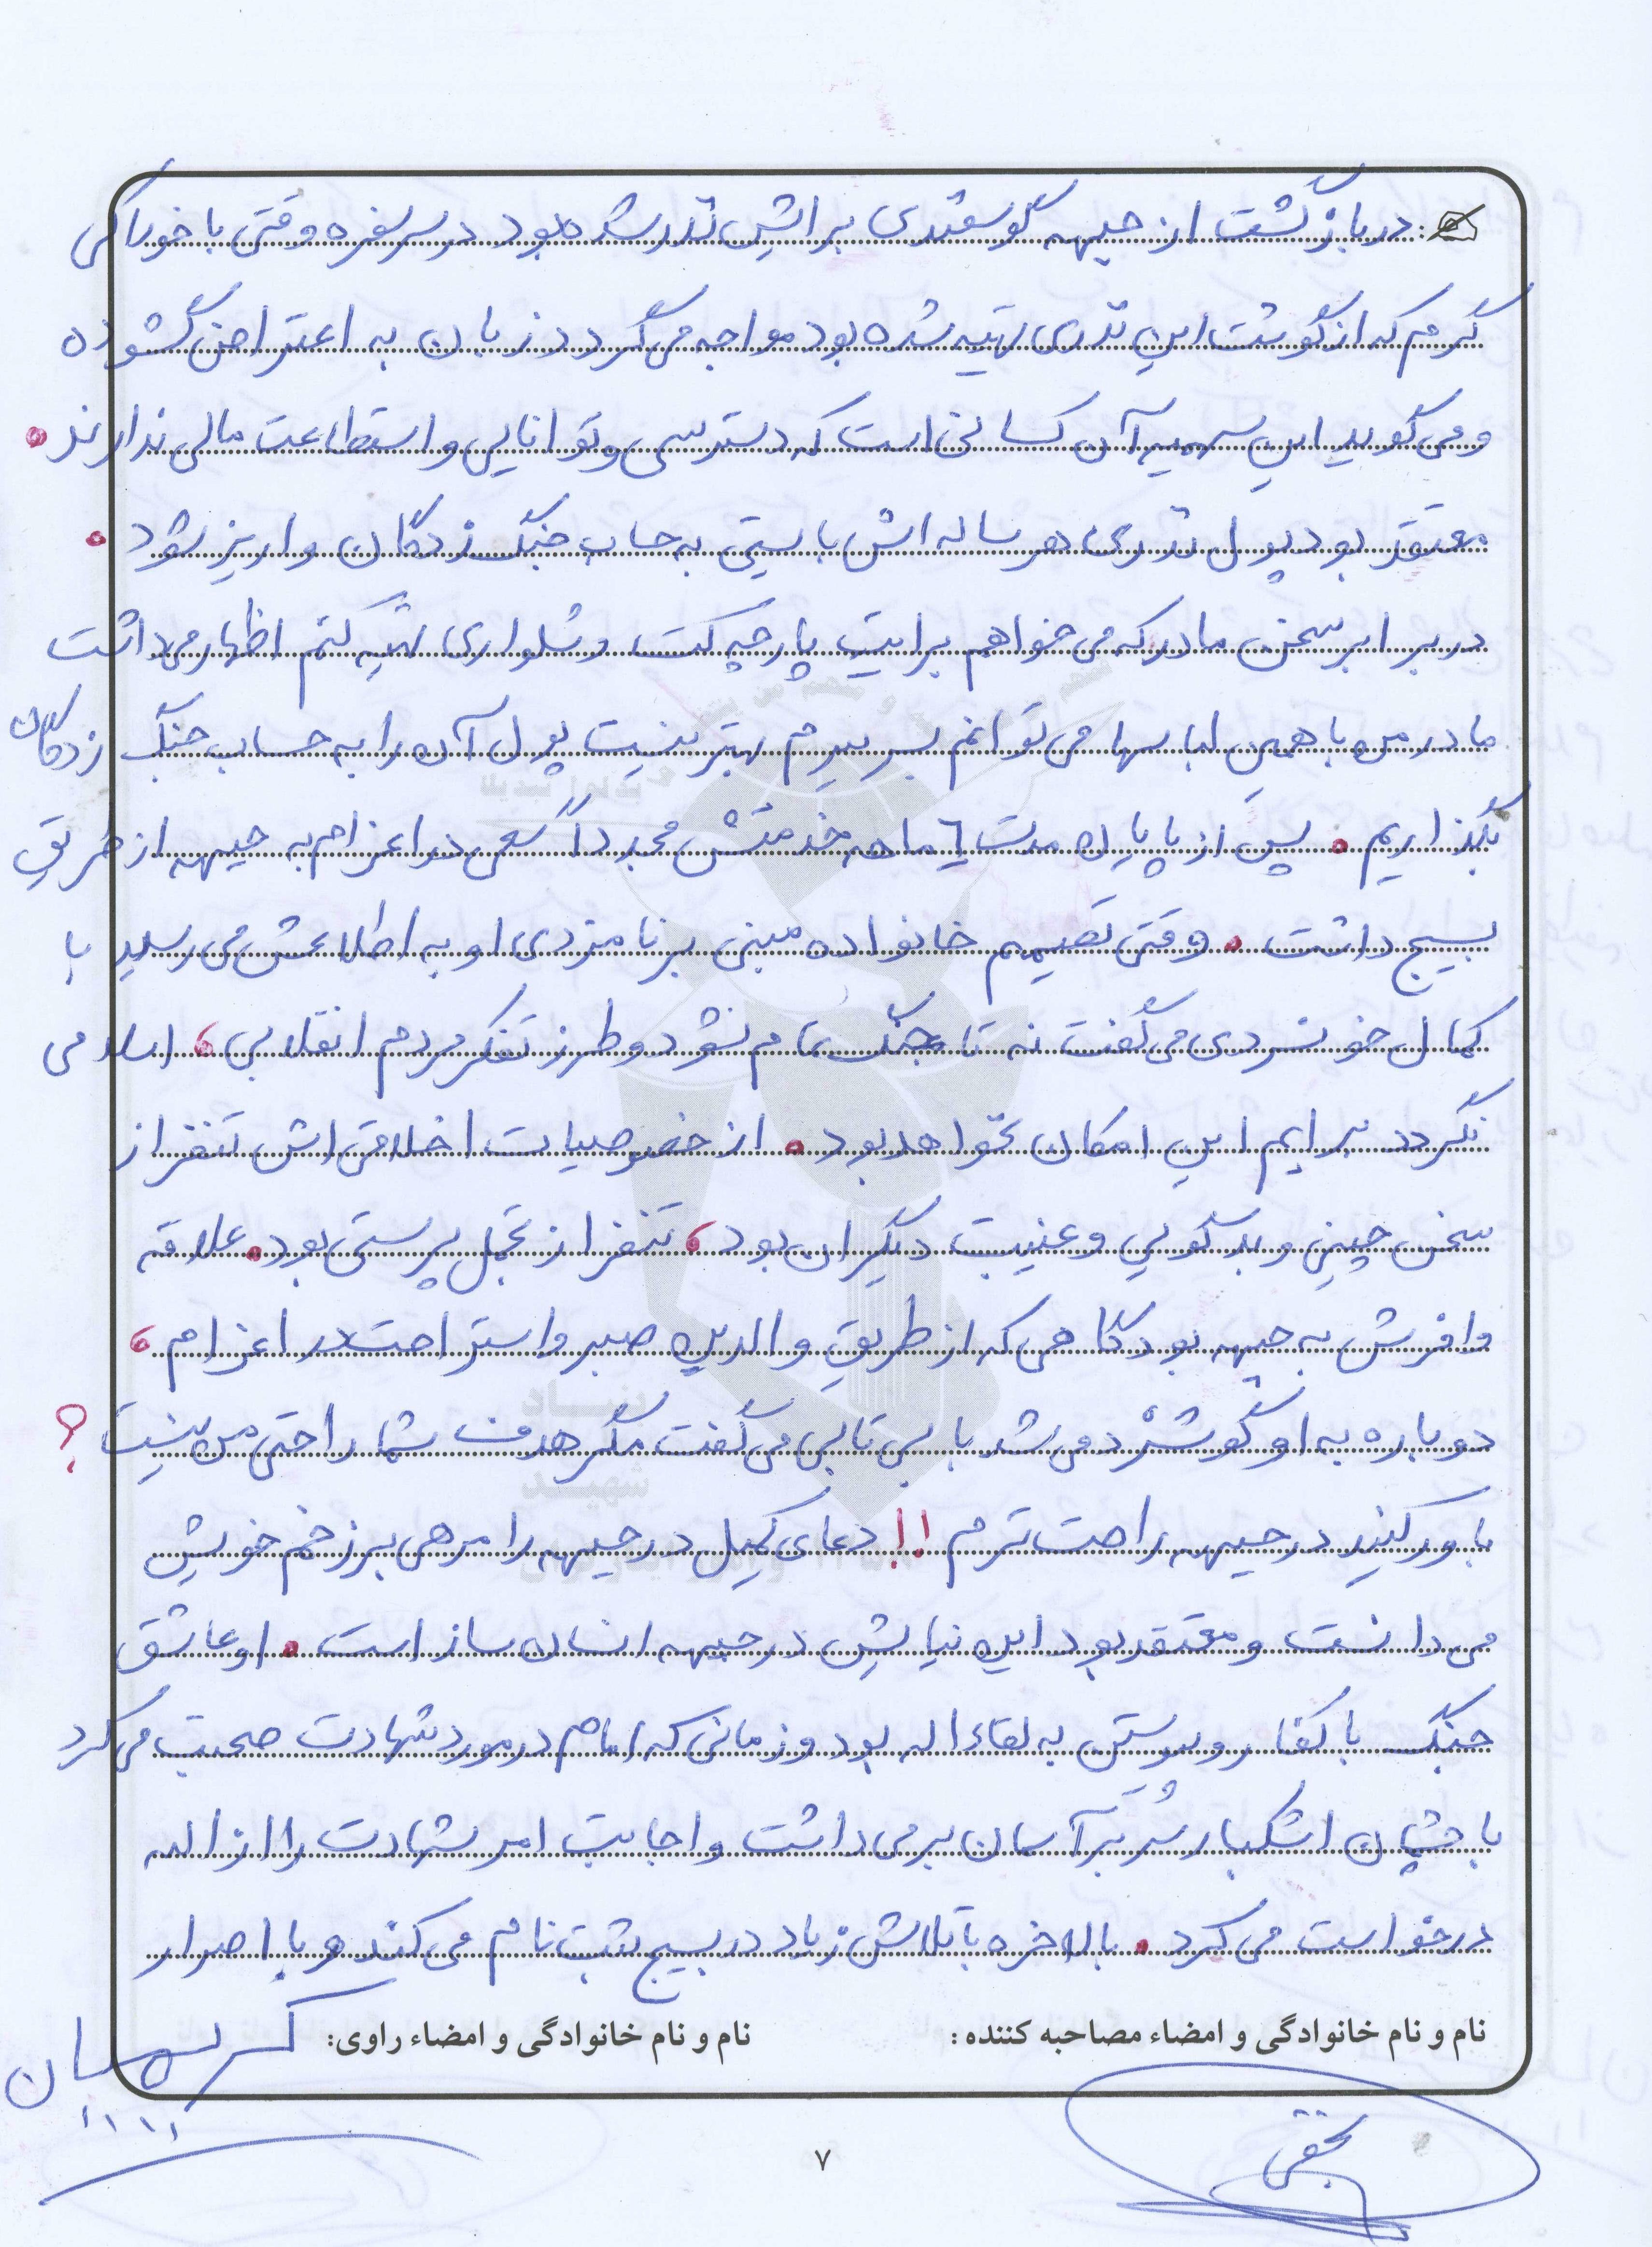 : در بازگشت از جبهه گوسفندی برایش نذر شده بود در سر سفره وقتی با خوراکی
گرم که از گوشت این نذری تهیه شده بود مواجه می گردد زبان به اعتراض گشوده
و می گوید این سهمیه آن کسانی است که دسترسی و توانایی و استطاعت مالی ندارند.
معتقد بود پول نذری هر ساله اش بایستی به حساب جنگ زدگان واریز شود.
در برابر سخن مادر که می خواهم برایت پارچه کت و شلواری تهیه کنم اظهار می داشت
مادر من با همین لباسها می توانم بسر ببرم بهتر نیست پول آن را به حساب جنگ زدگان
بگذاریم. پس از پایان مدت ٦ ماهه خدمتش مجدداً سعی در اعزام به جبهه از طریق
بسیج داشت. وقتی تصمیم خانواده مبنی بر نامزدی او به اطلاعش می رسید با
کمال خونسردی می گفت نه تا جنگ تمام نشود و طرز تفکر مردم انقلابی، اسلامی
نگردد برایم این امکان نخواهد بود. از خصوصیات اخلاقی اش تنفر از
سخن چینی و بدگویی و غیبت دیگران بود، تنفر از تجمل پرستی بود. علاقه
وافرش به جبهه بود گاهی که از طریق والدین صبر و استراحت در اعزام،
دوباره به او گوشزد می شد با بی تابی می گفت مگر هدف شما راحتی من نیست؟
باور کنید در جبهه راحت ترم!! دعای کمیل در جبهه را مرهمی بر زخم خویش
می دانست و معتقد بود این نیایش در جبهه انسان ساز است. او عاشق
جنگ با کفار و پیوستن به لقاء اله بود و زمانی که امام در مورد شهادت صحبت می کرد
با چشمان اشکبار سر بر آسمان برمی داشت و اجابت امر شهادت را از الله
درخواست می کرد. بالاخره با تلاش زیاد در بسیج ثبت نام می کند و با اصرار
نام و نام خانوادگی و امضاء مصاحبه کننده: نام و نام خانوادگی و امضاء راوی:
۷